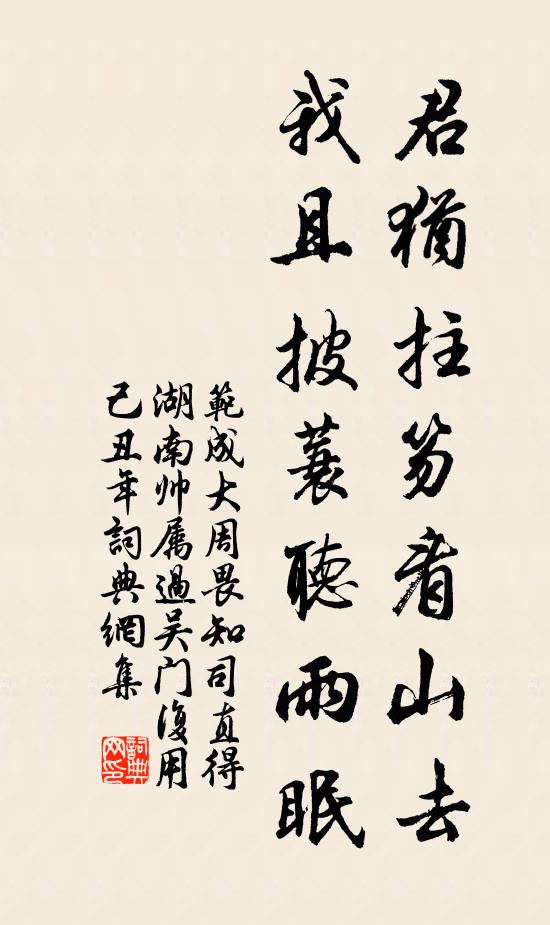 君猶拄笏看山去
我且披蓑聽雨眠
範成大周畏知司直得
湖南帅属過吴门復用
己丑年詞典網集
詞典网